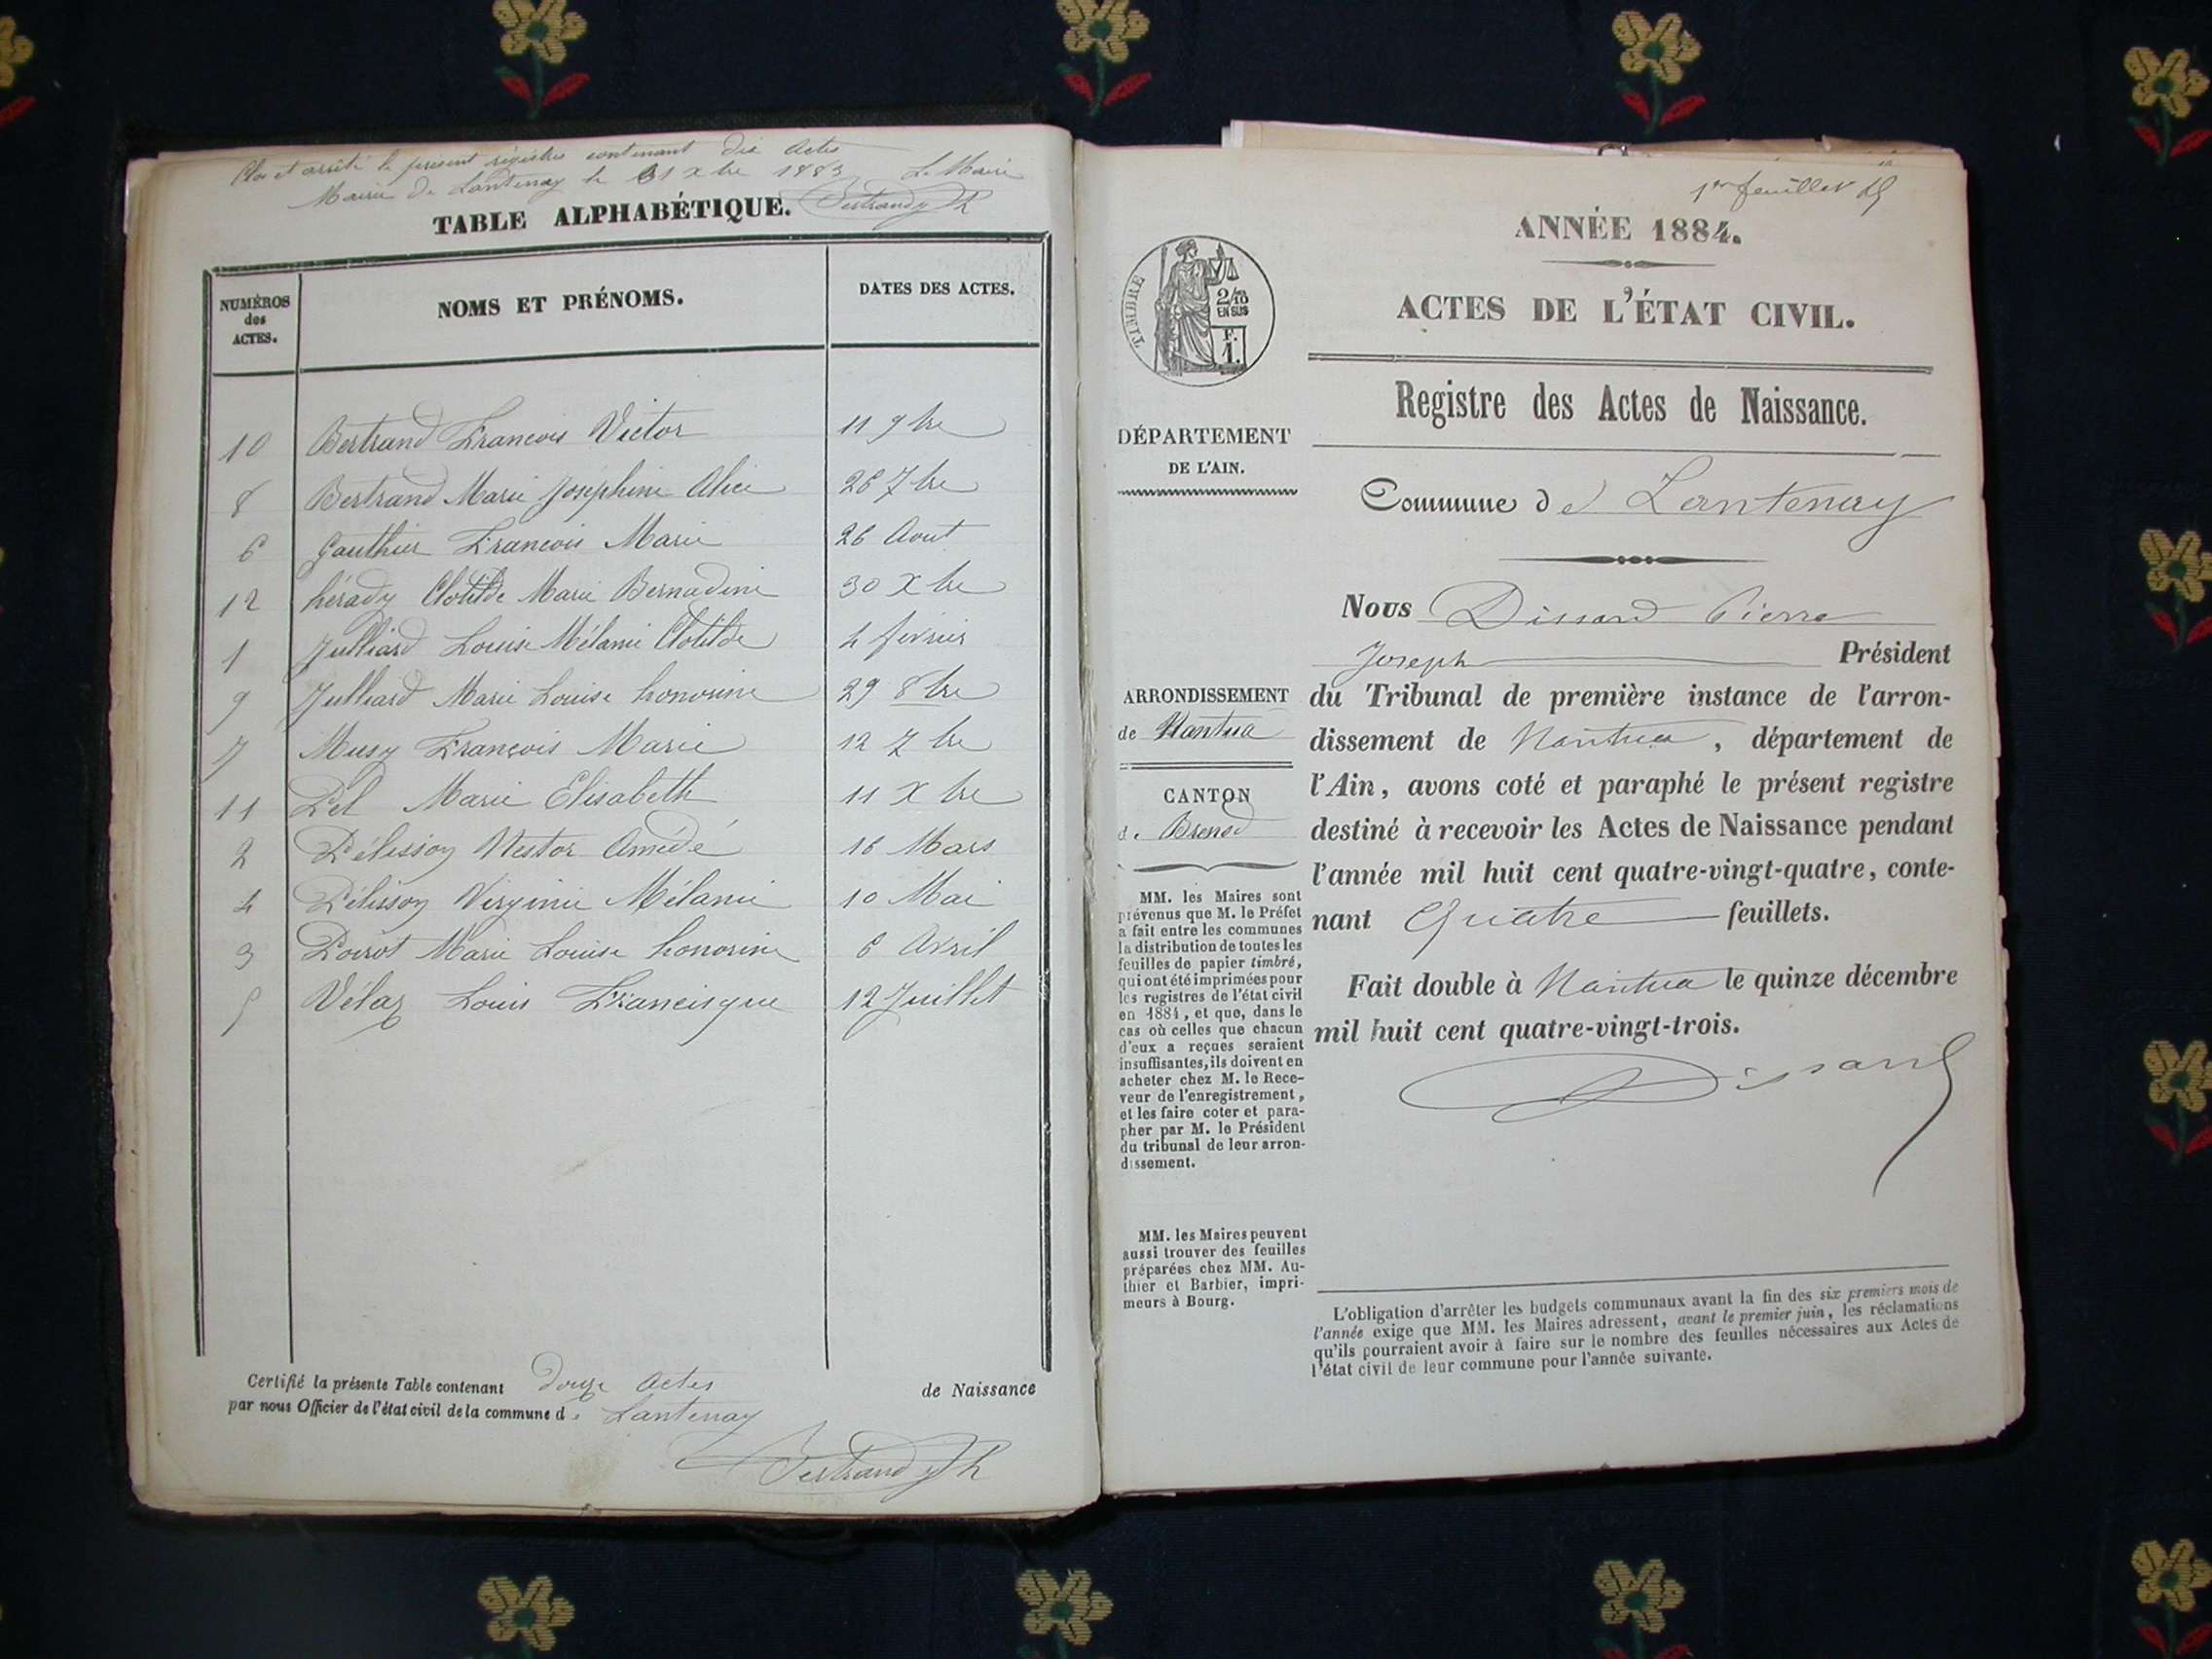 Clos et arrêté le présent régistre contenant dix Actes
Mairie de Lantenay le 31 Xbre 1883 Le Maire
Bertrand Jh
TABLE ALPHABÉTIQUE.
NUMÉROS des ACTES.
NOMS ET PRÉNOMS.
DATES DES ACTES.
10 Bertrand François Victor 11 9bre
8 Bertrand Marie Joséphine Alice 26 7bre
6 Gauthier François Marie 26 Aout
12 hérady Clotilde Marie Bernadine 30 Xbre
1 Julliard Louise Mélanie Clotilde 4 février
9 Julliard Marie Louise honorine 29 8bre
7 Musy François Marie 12 7bre
11 Pel Marie Elisabeth 11 Xbre
2 Pélisson Nestor Amédé 16 Mars
4 Pélisson Virginie Mélanie 10 Mai
3 Poirot Marie Louise honorine 6 Avril
5 Vélaz Louis Francisque 12 Juillet
Certifié la présente Table contenant douze Actes de Naissance
par nous Officier de l'état civil de la commune de Lantenay
Bertrand Jh
1er feuillet
ANNÉE 1884.
ACTES DE L'ÉTAT CIVIL.
Registre des Actes de Naissance.
TIMBRE
2/10
EN SUS
F.
1.
DÉPARTEMENT
DE L'AIN.
Commune de Lantenay
Nous Dissard Pierre
Joseph Président
du Tribunal de première instance de l'arron-
dissement de Nantua, département de
l'Ain, avons coté et paraphé le présent registre
destiné à recevoir les Actes de Naissance pendant
l'année mil huit cent quatre-vingt-quatre, conte-
nant Quatre feuillets.
Fait double à Nantua le quinze décembre
mil huit cent quatre-vingt-trois.
Dissard
ARRONDISSEMENT
de Nantua
CANTON
de Brenod
MM. les Maires sont
prévenus que M. le Préfet
a fait entre les communes
la distribution de toutes les
feuilles de papier timbré,
qui ont été imprimées pour
les registres de l'état civil
en 1884, et que, dans le
cas où celles que chacun
d'eux a reçues seraient
insuffisantes, ils doivent en
acheter chez M. le Rece-
veur de l'enregistrement,
et les faire coter et para-
pher par M. le Président
du tribunal de leur arron-
dissement.
MM. les Maires peuvent
aussi trouver des feuilles
préparées chez MM. Au-
thier et Barbier, impri-
meurs à Bourg.
L'obligation d'arrêter les budgets communaux avant la fin des six premiers mois de
l'année exige que MM. les Maires adressent, avant le premier juin, les réclamations
qu'ils pourraient avoir à faire sur le nombre des feuilles nécessaires aux Actes de
l'état civil de leur commune pour l'année suivante.